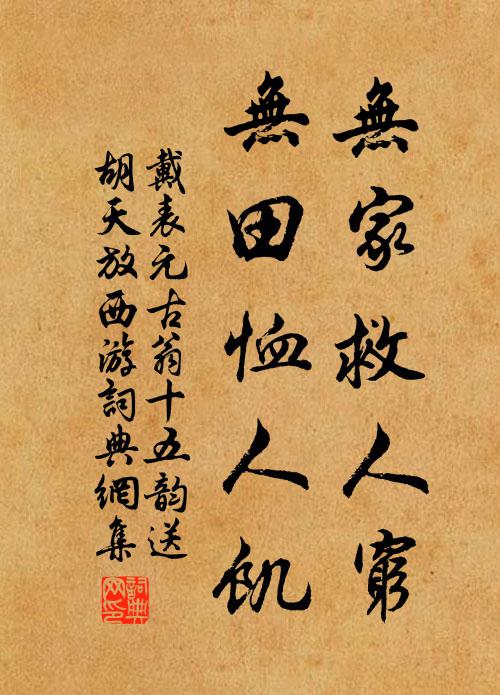 無家救人窮
無田恤人飢
戴表元古翁十五韵送
胡天放西游詞典網集
詞典网印